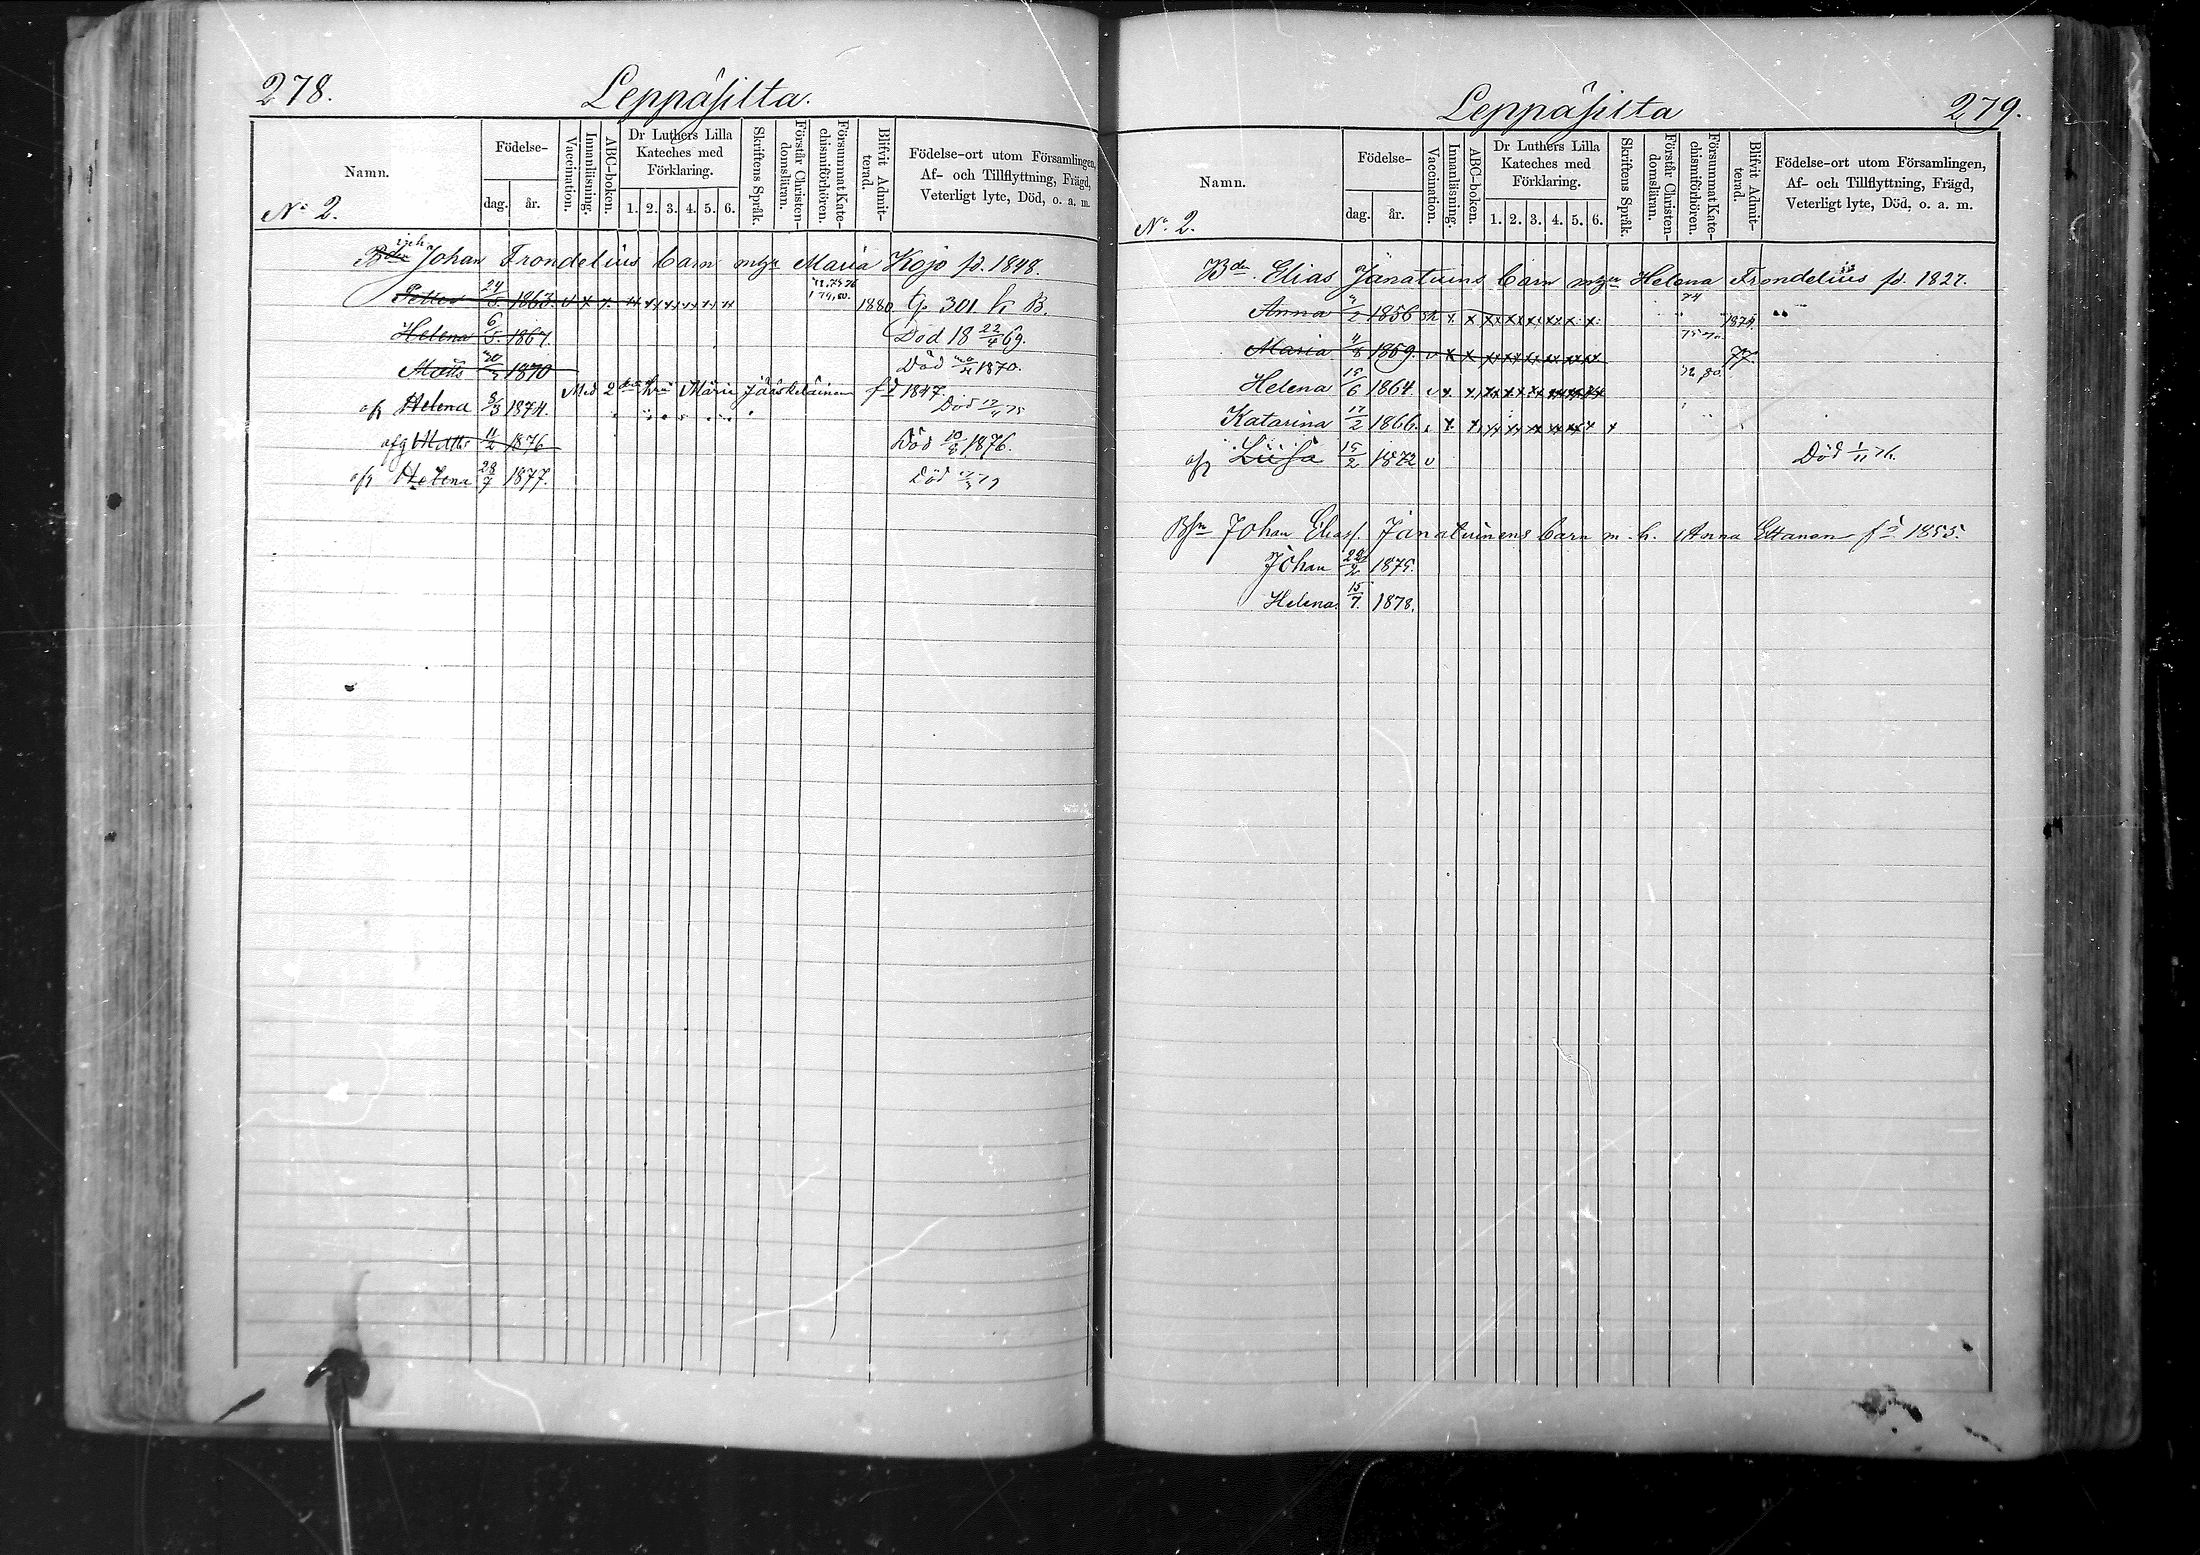 278.
Leppäsilta.
Namn.
Födelse-
dag.
år.
Vaccination.
Innanläsning.
ABC-boken.
Dr Luthers Lilla
Kateches med
Förklaring.
1. 2. 3. 4. 5. 6.
Skriftens Språk.
Förstår Christen-
domsläran.
Försummat Kate-
chismiförhören.
Blifvit Admit-
terad.
Födelse-ort utom Församlingen,
Af- och Tillflyttning, Frägd,
Veterligt lyte, Död, o. a. m.
No 2.
Johan Frondelius barn Maria Kojo fd. 1848.
Petter 24/5 1863. v x x 1880 301. k B.
Helena 6/5 1867. Död 18 22/4 69.
Matts 1870 Död 1870.
Med 2 dra Maria Jääskeläinen fd 1847
Helena 8/3 1874. Död 75
afg Matts 11/2 1876 Död 10/ 1876.
Helena 28/7 1877. Död
Leppäsilta
279.
Namn.
Födelse-
dag.
år.
Vaccination.
Innanläsning.
ABC-boken.
Dr Luthers Lilla
Kateches med
Förklaring.
1. 2. 3. 4. 5. 6.
Skriftens Språk.
Förstår Christen-
domsläran.
Försummat Kate-
chismiförhören.
Blifvit Admit-
terad.
Födelse-ort utom Församlingen,
Af- och Tillflyttning, Frägd,
Veterligt lyte, Död, o. a. m.
No 2.
Bdn Elias Janatuins barn Helena Frondelius fd. 1827.
Anna 1856 1874.
Maria 11/8 1859. v x x 77.
Helena 15/6 1864 v x x
Katarina 17/2 1866. x x
Liisa 15/2 1872 v Död 1/11 76.
Johan Eliass. Janatuinens barn m. h. Anna Ettanen fd 1855.
Johan 22/2 1875.
Helena 15/7 1878.